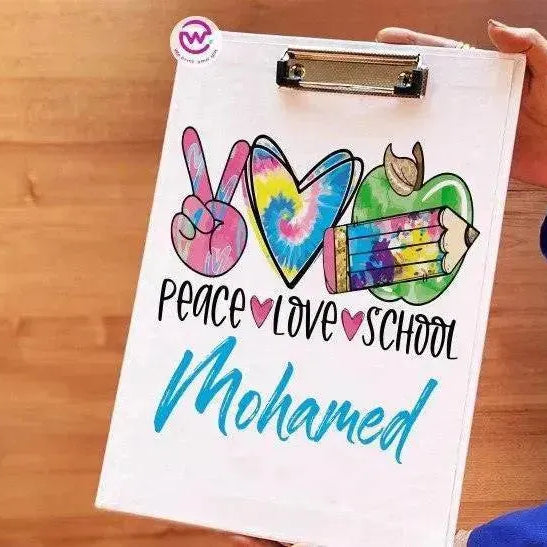 PEACE LOVE SCHOOL
Mohamed